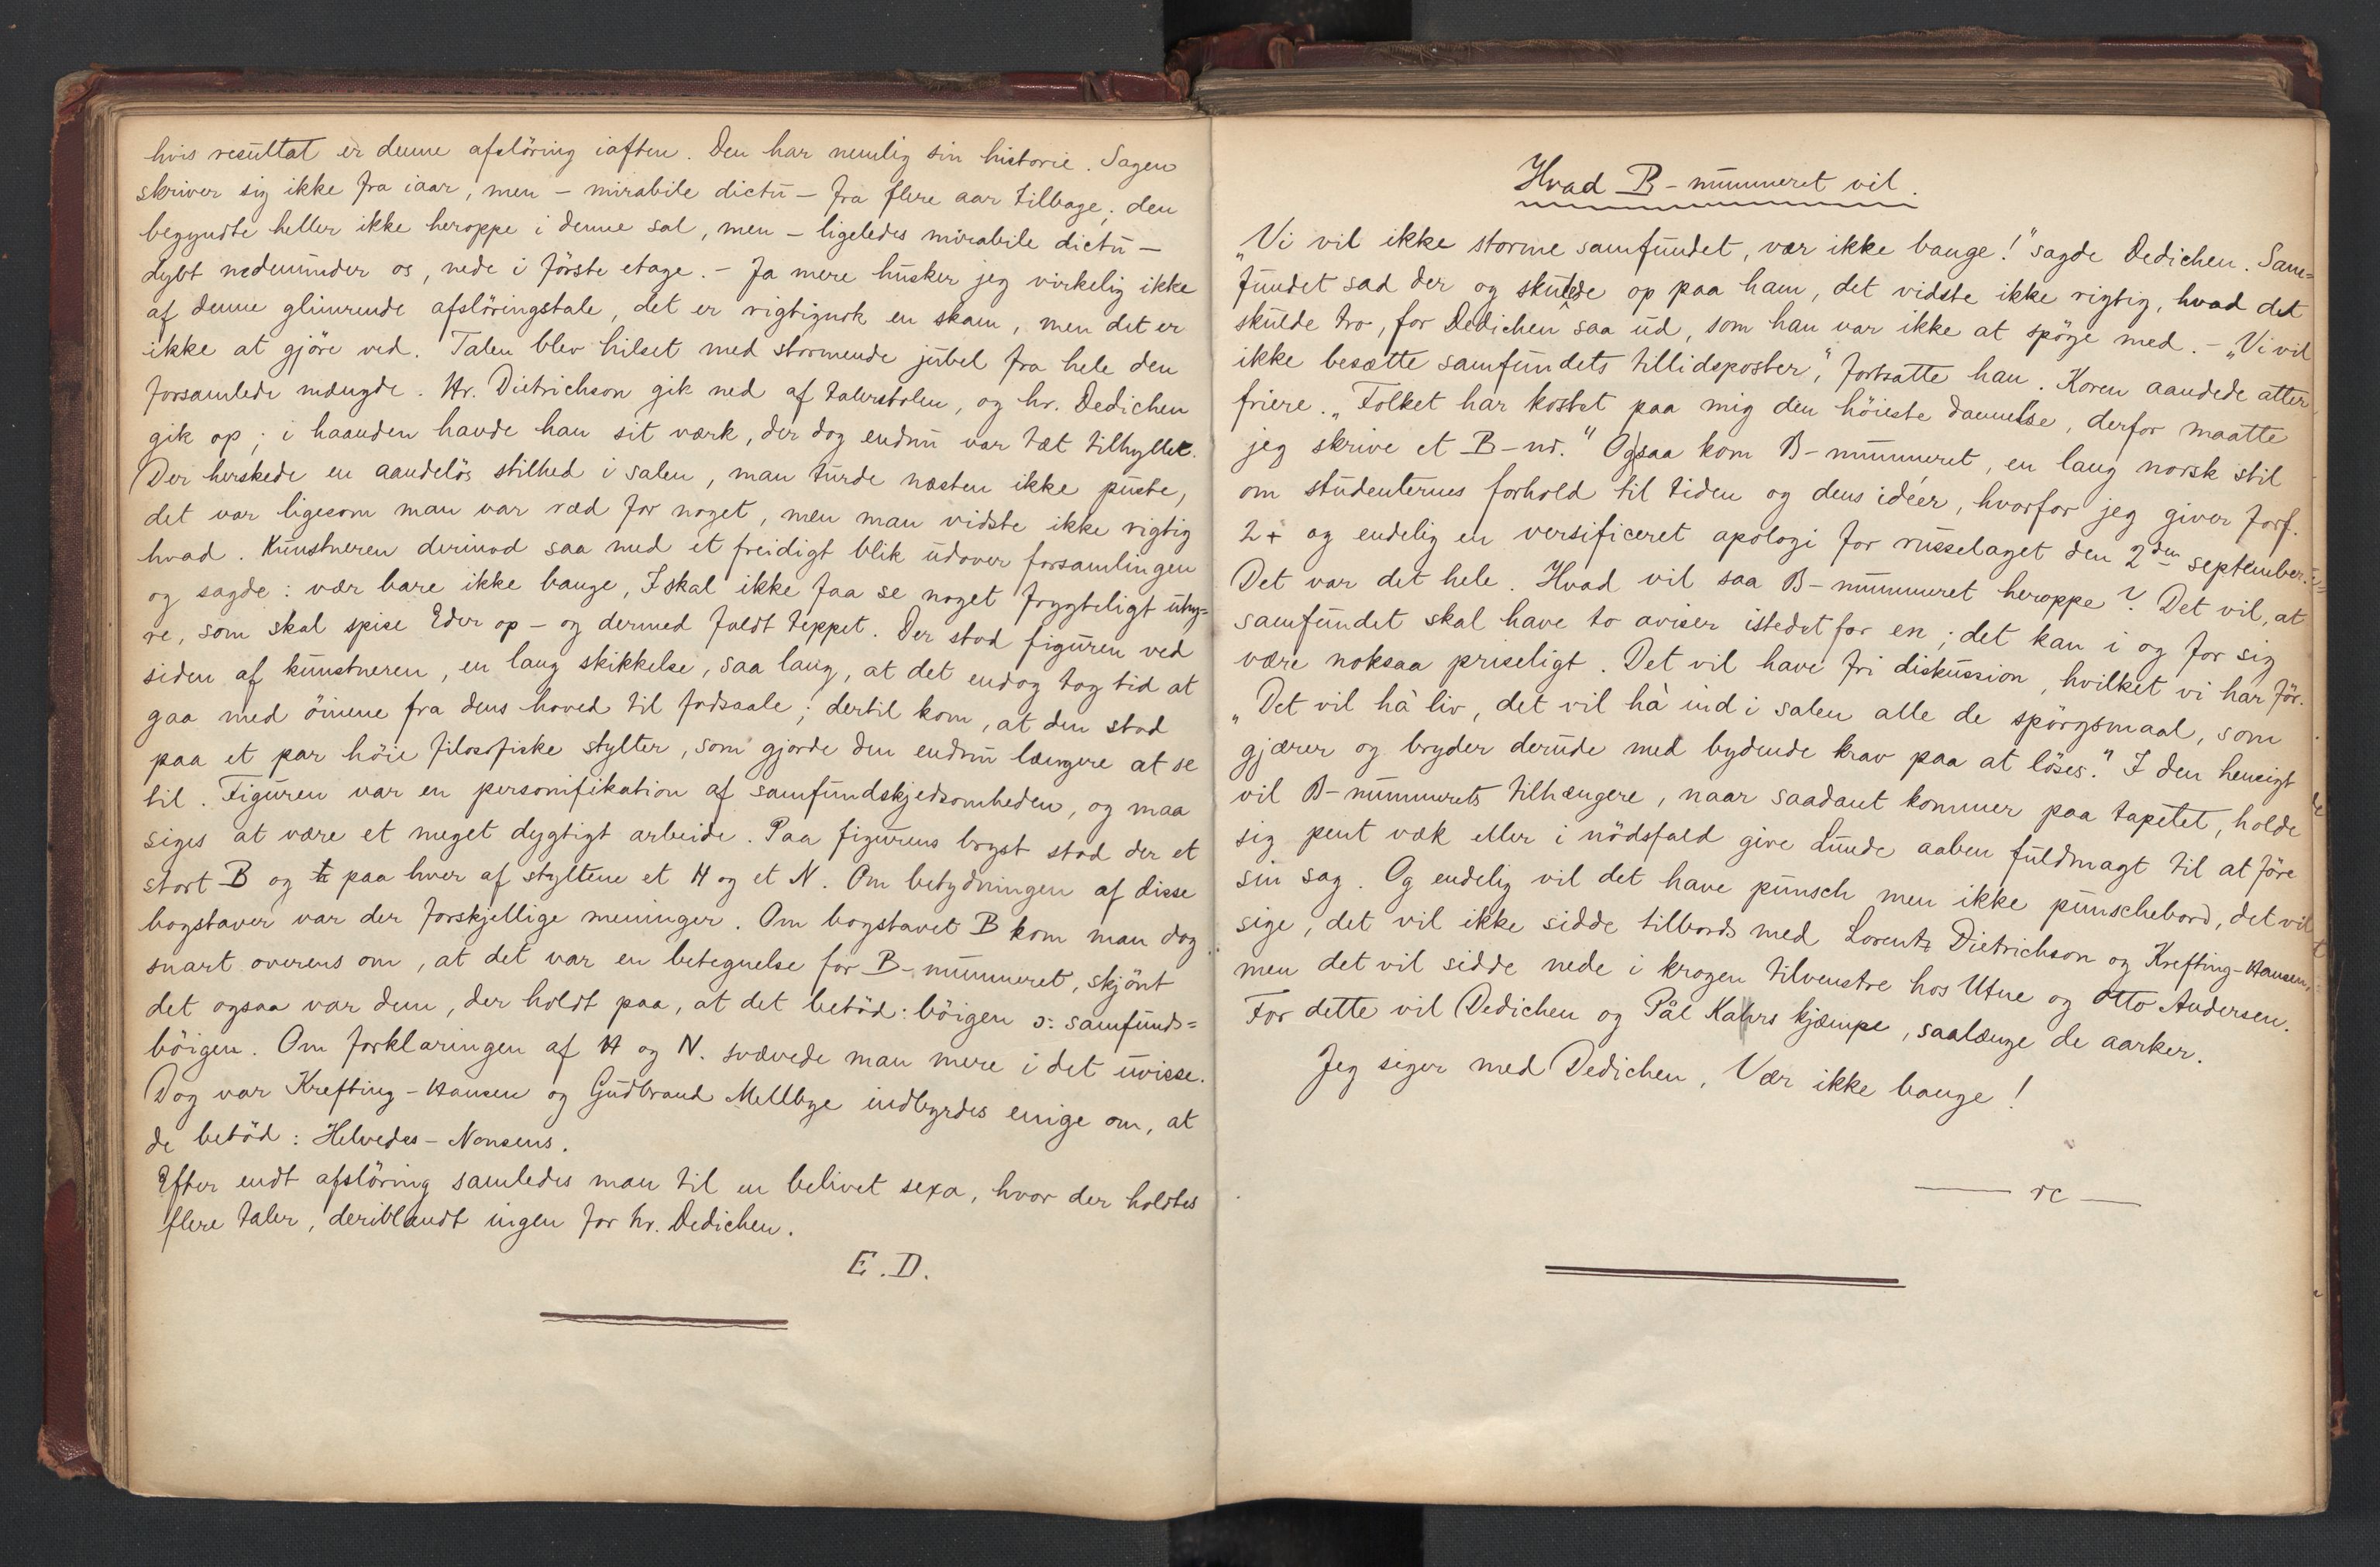 hvis resultat er denne afsløring iaften. Den har nemlig sin historie. Sagen
skriver sig ikke fra iaar, men – mirabile dictu – fra flere aar tilbage; den
begyndte heller ikke heroppe i denne sal, men – ligeledes mirabile dictu –
dybt nedenunder os, nede i förste etage. – Ja mere husker jeg virkelig ikke
af denne glimrende afslöringstale, det er rigtignok en skam, men det er
ikke at gjöre ved. Talen blev hilset med stormende jubel fra hele den
forsamlede mængde. Hr. Dietrichson gik ned af talerstolen, og hr. Dedichen
gik op; i haanden havde han sit værk, der dog endnu var tæt tilhyllet.
Der herskede en aandelös stilhed i salen, man turde næsten ikke puste,
det var ligesom man var ræd for noget, men man vidste ikke rigtig
hvad. Kunstneren derimod saa med et freidigt blik udover forsamlingen
og sagde: vær bare ikke bange, I skal ikke faa se noget frygteligt uhy=
re, som skal spise Eder op – og dermed faldt teppet. Der stod figuren ved
siden af kunstneren, en lang skikkelse, saa lang, at det endog tog tid at
gaa med öinene fra dens hoved til fodsaale; dertil kom, at den stod
paa et par höie filosofiske stylter, som gjorde den endnu længere at se
til. Figuren var en personifikation af samfundskjedsomheden, og maa
siges at være et meget dygtigt arbeide. Paa figurens bryst stod der et
stort B og paa hver af styltene et H og et N. Om betydningen af disse
bogstaver var der forskjellige meninger. Om bogstavet B kom man dog
snart overens om, at det var en betegnelse for B-nummeret, skjönt
det ogsaa var dem, der holdt paa, at det betöd: böigen ɔ: samfunds=
böigen. Om forklaringen af H og N. svævede man mere i det uvisse.
Dog var Krefting-Hansen og Gudbrand Mellbye indbyrdes enige om, at
de betöd: Helvedes-Nonsens.
Efter endt afslöring samledes man til en belivet sexa, hvor der holdtes
flere taler, deriblandt ingen for hr. Dedichen.
E. D.
Hvad B-nummeret vil.
„Vi vil ikke storme samfundet, vær ikke bange!" sagde Dedichen. Sam=
fundet sad der og skulede op paa ham, det vidste ikke rigtig, hvad det
skulde tro, for Dedichen saa ud, som han var ikke at spöge med. – „Vi vil
ikke besætte samfundets tillidsposter", fortsatte han. Koren aandede atter
friere. „Folket har kostet paa mig den höieste dannelse, derfor maatte
jeg skrive et B-nr." Ogsaa kom B-nummeret, en lang norsk stil
om studenternes forhold til tiden og dens idéer, hvorfor jeg giver forf.
2+ og endelig en versificeret apologi for russelaget den 2den september.
Det var det hele. Hvad vil saa B-nummeret heroppe? Det vil, at
samfundet skal have to aviser istedetfor en; det kan i og for sig
være noksaa priseligt. Det vil have fri diskussion, hvilket vi har för.
„Det vil hà liv, det vil hà ind i salen alle de spörgsmaal, som
gjærer og bryder derude med bydende krav paa at löses." I den henseigt
vil B-nummerets tilhængere, naar saadant kommer paa tapetet, holde
sig pent væk eller i nödsfald give Lunde aaben fuldmagt til at före
sin sag. Og endelig vil det have punsch men ikke punschebord, det vil
sige, det vil ikke sidde tilbords med Lorentz Dietrichson og Krefting-Hansen,
men det vil sidde nede i krogen tilvenstre hos Utne og Otto Andersen.
For dette vil Dedichen og Pål Kahrs kjæmpe, saalænge de aarker.
Jeg siger med Dedichen, Vær ikke bange!
— rc —